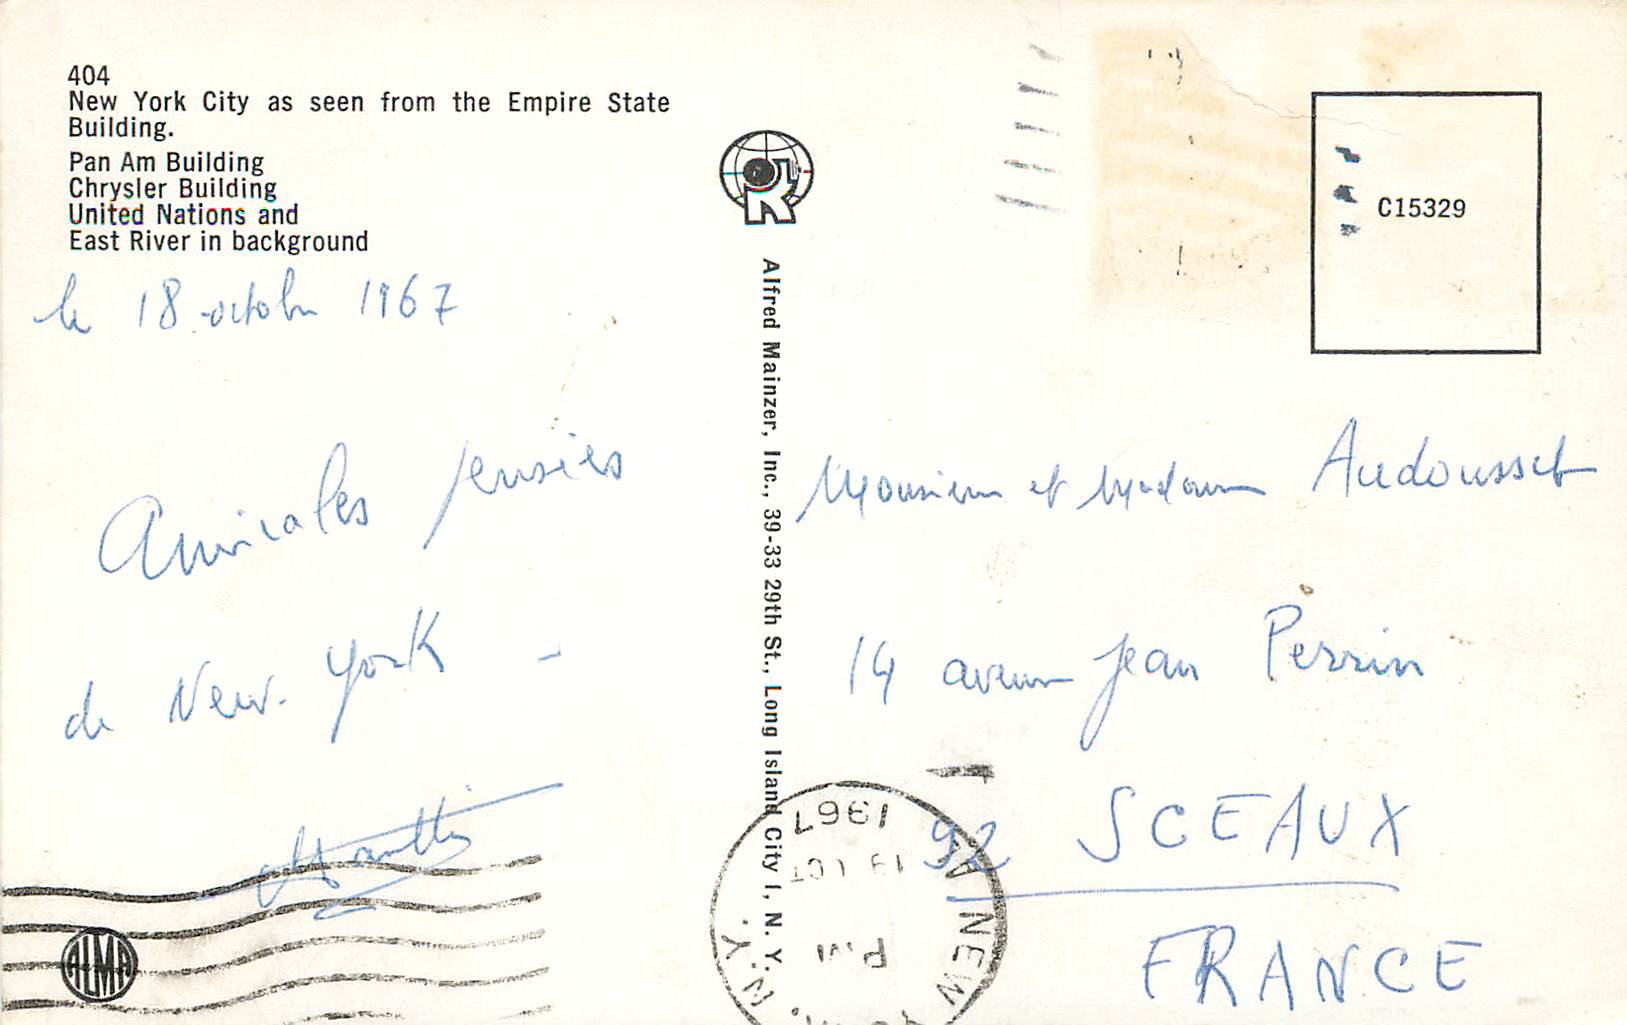 404
New York City as seen from the Empire State
Building.
Pan Am Building
Chrysler Building
United Nations and
East River in background
le 18 octobre 1967
Amicales pensées
de New-York -
ALMA
Alfred Mainzer, Inc., 39-33 29th St., Long Island City 1, N. Y.
C15329
Monsieur et Madame Audousset
14 avenue Jean Perrin
92 SCEAUX
FRANCE
NEW
N.Y.
P.M
19 OCT
1967